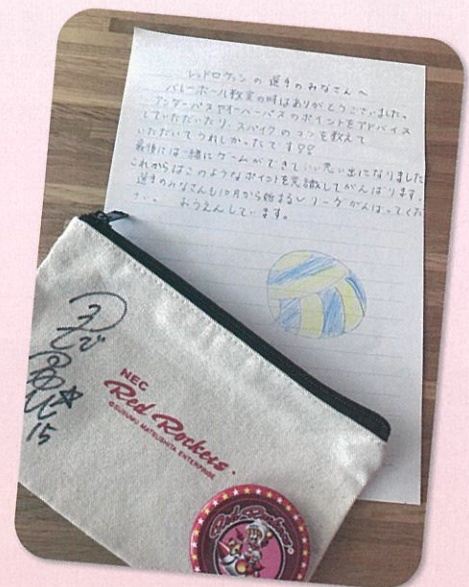 レッドロケッツの選手のみなさんへ
バレーボール教室の時はありがとうございました。
アンダーパスやオーバーパスのポイントをアドバイス
していただいたり、スパイクのコツを教えて
いただいてうれしかったです!!
最後には一緒にゲームができていい思い出になりました
これからはこのようなポイントを意識してがんばります。
選手のみなさんも10月から始まるVリーグがんばってくだ
さい。 おうえんしています。
15
NEC
Red Rockets.
©SUSUMU MATSUSHITA ENTERPRISE
Red Rockets